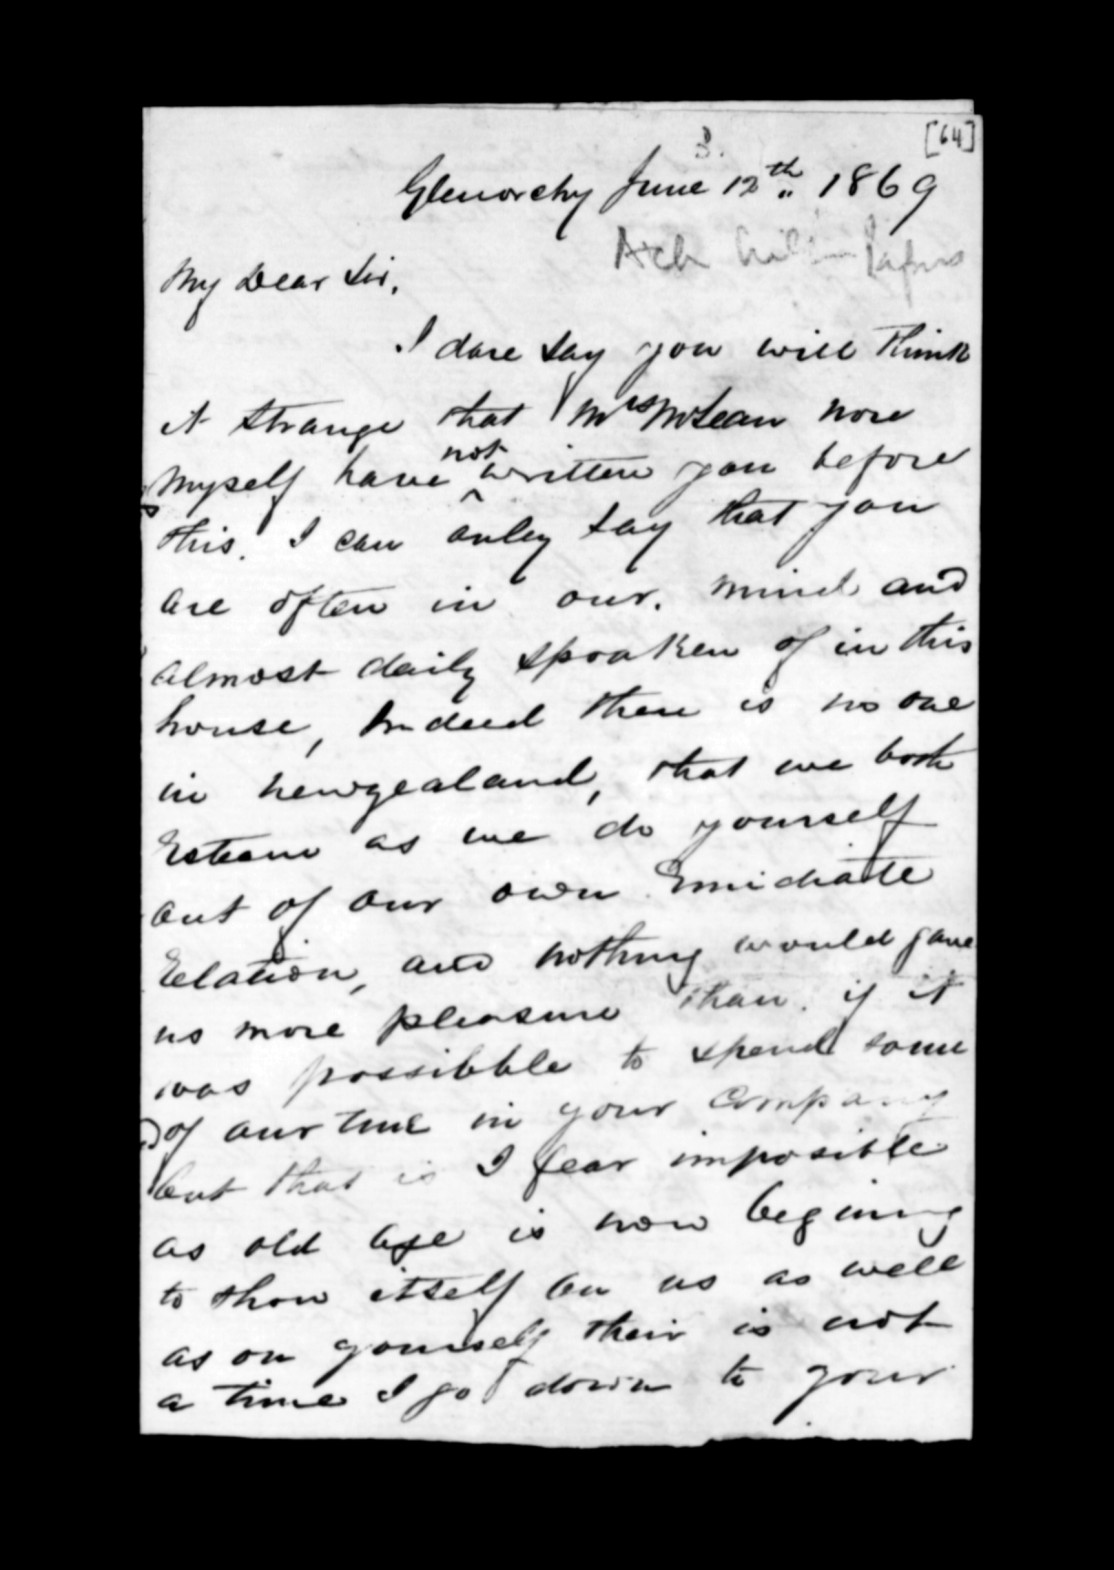 3.
[64]
Glenorchy June 12th 1869
Arch Papers
My Dear Sir,
I dare say you will think
it strange that Mrs McLean nore
myself have not written you before
this. I can onley say that you
are often in our. mind and
almost daily spoaken of in this
house, Indeed there is no one
in newzealand, that we both
Esteam as we do yourself
out of our own Emidiate
Relation, and nothing would gave
us more pleasure than. if it
was possibble to spend some
of our time in your company
but that is I fear imposible
as old age is now begining
to show itself on us as well
as on yourself their is not
a time I go down to your